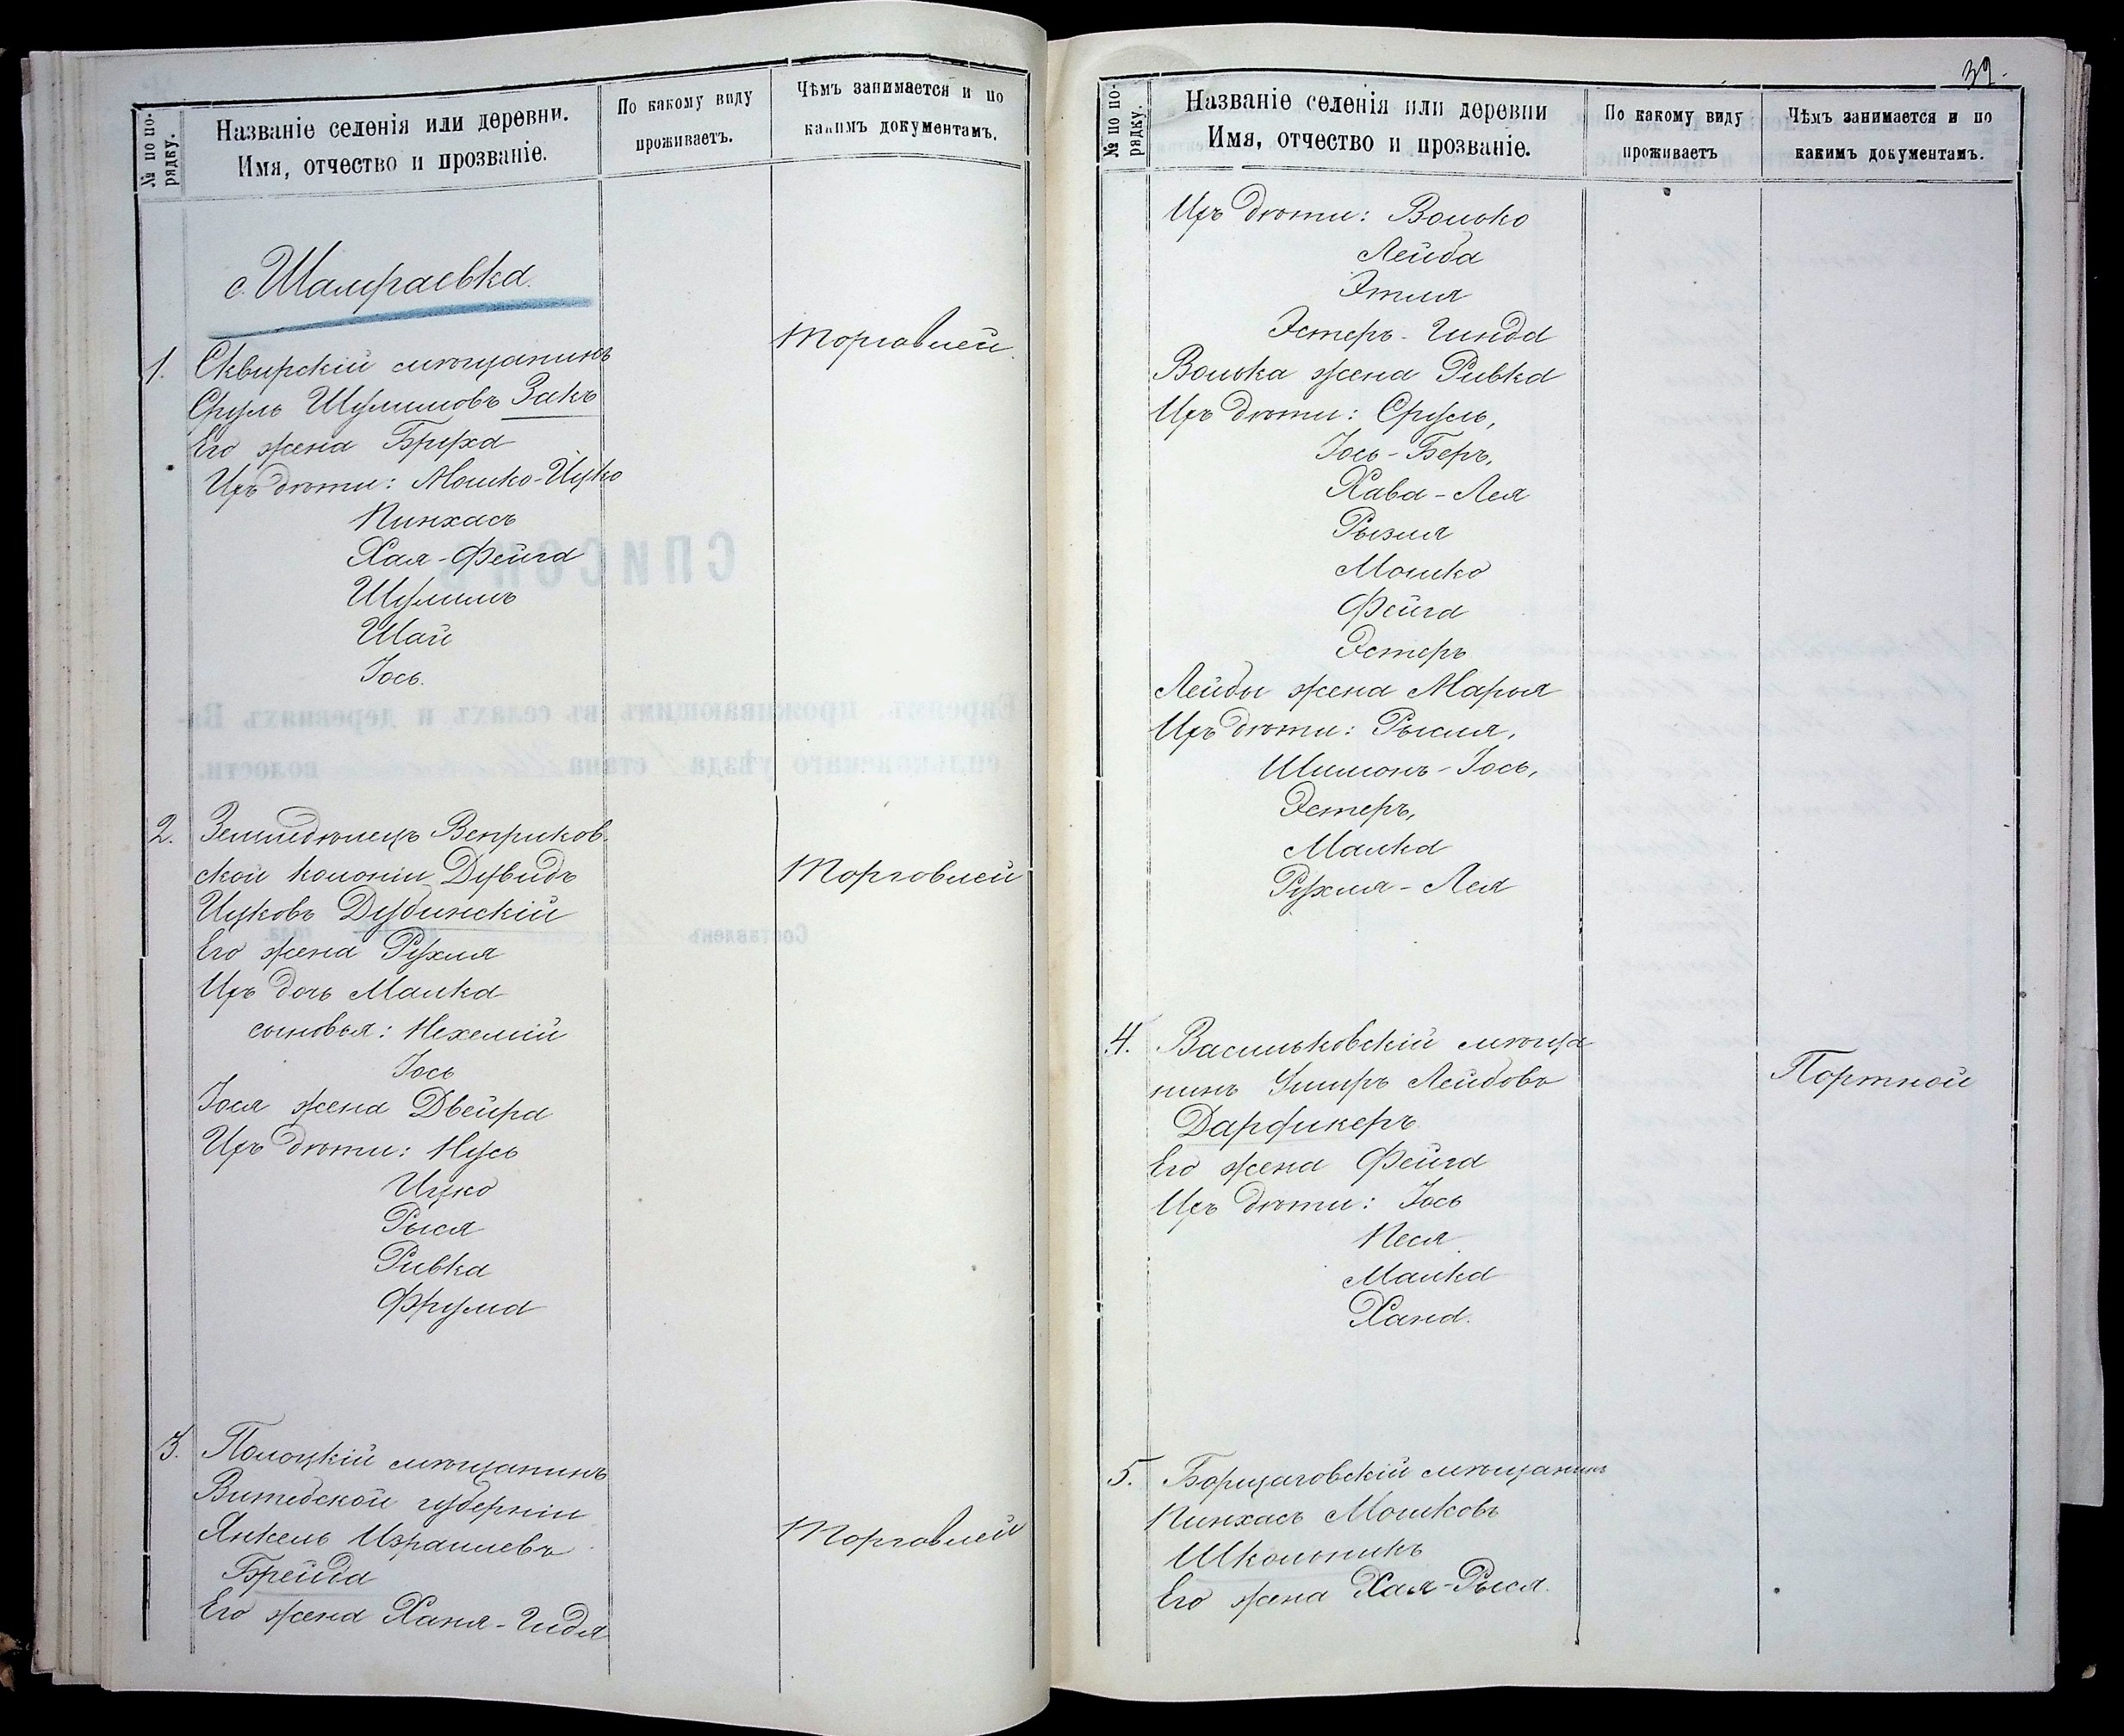 № по по-
рядку.
Названіе селенія или деревни.
Имя, отчество и прозваніе.
По какому виду
проживаетъ.
Чѣмъ занимается и по
какимъ документамъ.
с. Шамраевка.
1. Сквирскій мѣщанинъ
Торговлей.
Сруль Шулимовъ Закъ
Его жена Бруха
Ихъ дѣти: Мошко-Ицко
Пинхасъ
Хая-Фейга
Шулимъ
Шай
Іось.
2. Земледѣлецъ Веприков-
ской колоніи Дувидъ
Торговлей
Ицковъ Дубинскій
Его жена Рухля
Ихъ дочь Малка
сыновья: Нехемій
Іось
Іося жена Двейра
Ихъ дѣти: Нусь
Ицко
Рыся
Ривка
Фрума
3. Полоцкій мѣщанинъ
Витебской губерніи
Янкель Израилевъ
Торговлей
Брейда
Его жена Ханя-Гидя
39.
№ по по-
рядку.
Названіе селенія или деревни
Имя, отчество и прозваніе.
По какому виду
проживаетъ
Чѣмъ занимается и по
какимъ документамъ.
Ихъ дѣти: Волько
Лейба
Этля
Эстеръ-Гинда
Волька жена Ривка
Ихъ дѣти: Сруль,
Іось-Беръ,
Хава-Лея
Рызля
Мошко
Фейга
Эстеръ
Лейбы жена Марья
Ихъ дѣти: Рысля,
Шимонъ-Іось,
Эстеръ,
Малка
Рухля-Лея
4. Васильковскій мѣща
нинъ Лейбовъ
Портной
Дарфикеръ
Его жена Фейга
Ихъ дѣти: Іось
Песя
Малка
Хана.
5. Борщаговскій мѣщанинъ
Пинхасъ Мошковъ
Школьникъ
Его жена Хая-Рыся.